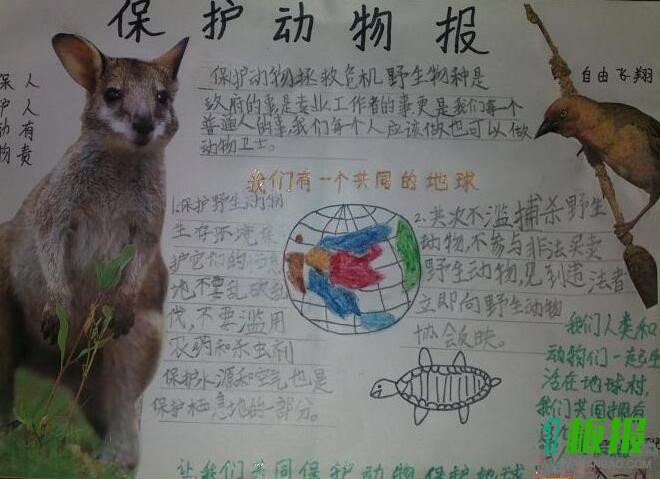 保护动物报
保护动物人人有责
自由飞翔
保护动物拯救危机野生物种是
政府的事是专业工作者的事更是我们每一个
普通人的事,我们每个人应该做也可以做
动物卫士。
我们有一个共同的地球
1.保护野生动物
生存环境保
护它们的栖息
地不要乱砍乱
伐,不要滥用
农药和杀虫剂
保护水源和空气也是
保护栖息地的一部分。
2.共次不滥捕杀野生
动物,不参与非法买卖
野生动物,见到违法者
立即向野生动物
协会反映。
我们人类和
动物们一起生
活在地球村,
我们共同拥有
让我们共同保护动物保护地球
板报